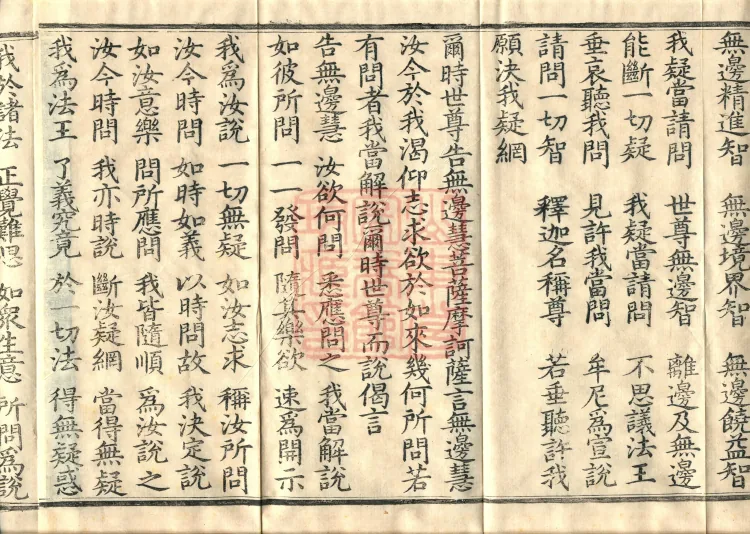 無邊精進智 無邊境界智 無邊饒益智
我疑當請問 世尊無邊智 離邊及無邊
能斷一切疑 我疑當請問 不思議法王
垂哀聽我問 見許我當問 牟尼為宣說
請問一切智 釋迦名稱尊 若垂聽許我
願決我疑網
爾時世尊告無邊慧菩薩摩訶薩言無邊慧
汝今於我渴仰志求欲於如來幾何所問若
有問者我當解說爾時世尊而說偈言
告無邊慧 汝欲何問 悉應問之 我當解說
如彼所問 一一發問 隨其樂欲 速為開示
我為汝說 一切無疑 如汝志求 稱汝所問
汝今時問 如時如義 以時問故 我決定說
如汝意樂 問所應問 我皆隨順 為汝說之
汝今時問 我亦時說 斷汝疑網 當得無疑
我為法王 了義究竟 於一切法 得無疑惑
我於諸法 正覺難思 如眾生意 所問為說